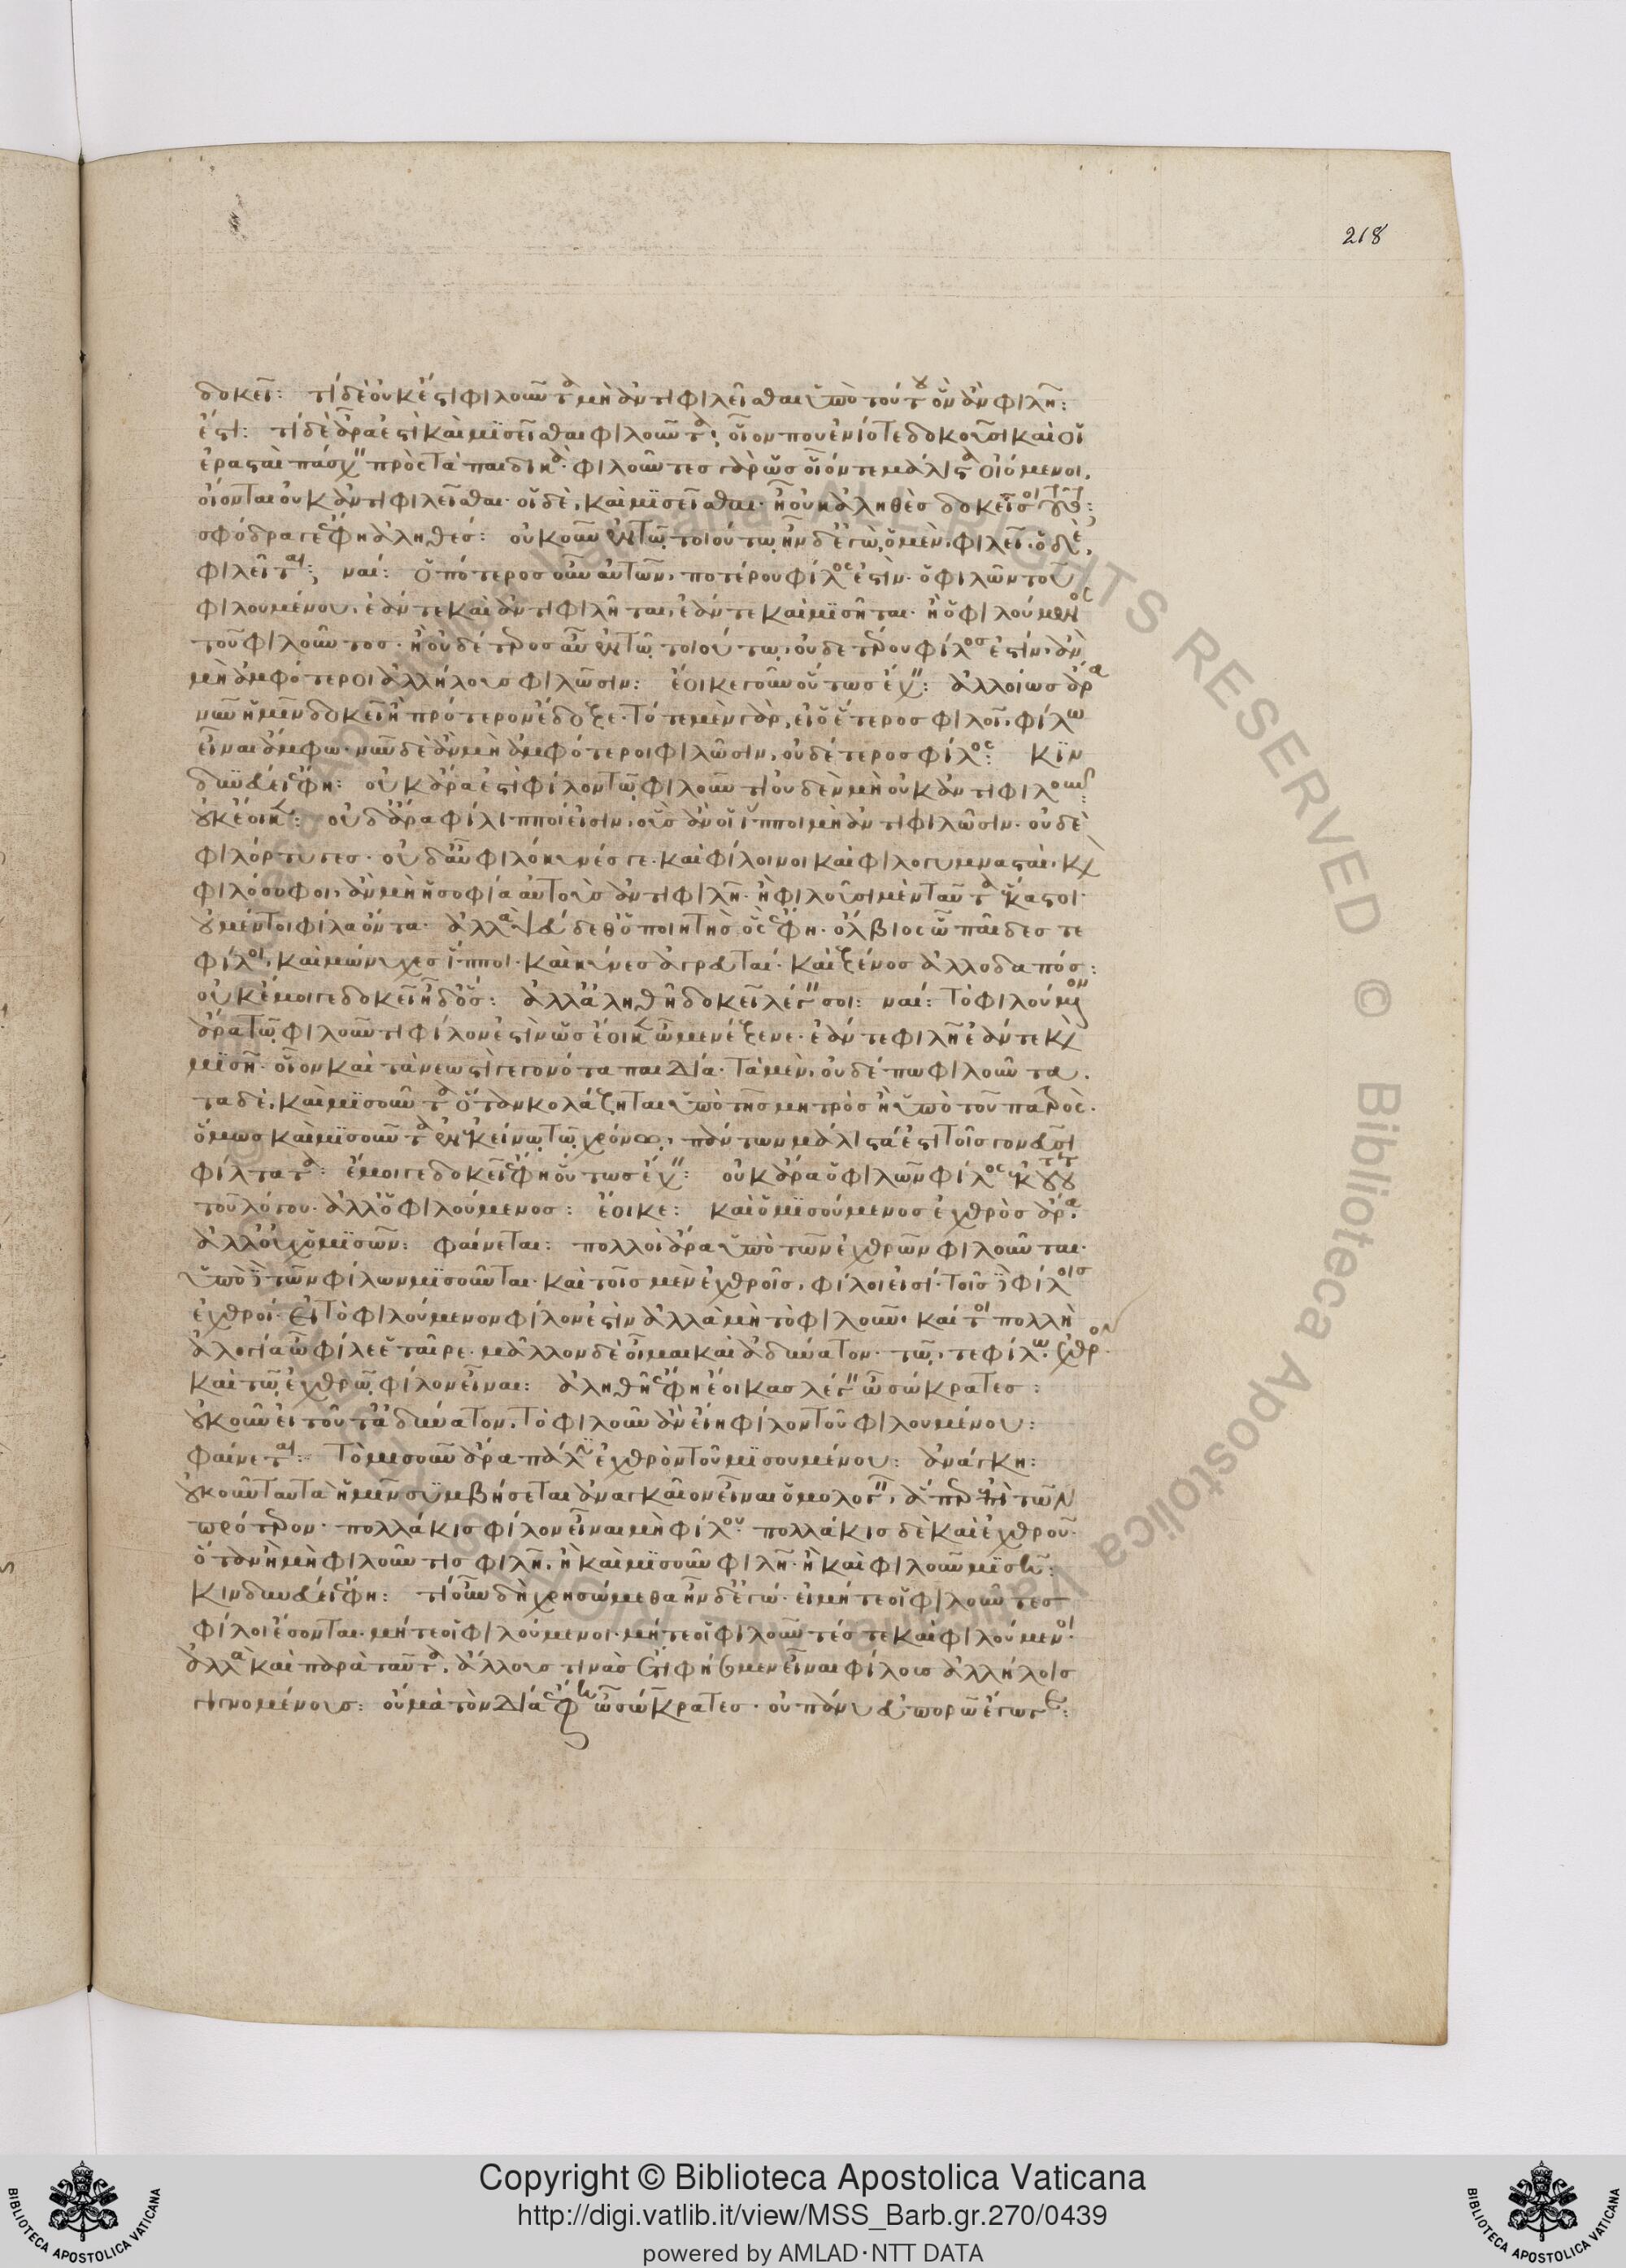 218
δοκεῖ: τί δὲ οὐκ ἔστι φιλοῦντα μὴ ἀντιφιλεῖσθαι ὑπὸ τούτου ὃν ἂν φιλῇ:
ἔστι: τί δὲ ἆρα ἔστι καὶ μισεῖσθαι φιλοῦντα; οἷον που ἐνίοτε δοκοῦσι καὶ οἱ
ἐρασταὶ πάσχειν πρὸς τὰ παιδικά· φιλοῦντες γὰρ ὡς οἷόν τε μάλιστα οἰόμενοι,
οἴονται οὐκ ἀντιφιλεῖσθαι· οἱ δὲ, καὶ μισεῖσθαι· ἢ οὐκ ἀληθὲς δοκεῖ σοι τοῦτο:
σφόδρα γε ἔφη ἀληθές: οὐκοῦν ἐν τῷ τοιούτῳ ἦν δ' ἐγώ, ὁ μὲν, φιλεῖ· ὁ δὲ,
φιλεῖται: ναί: ὁπότερος οὖν αὐτῶν, ποτέρου φίλος ἐστίν· ὁ φιλῶν τοῦ
φιλουμένου, ἐάν τε καὶ ἀντιφιλῆται, ἐάν τε καὶ μισῆται· ἢ ὁ φιλούμενος
τοῦ φιλοῦντος· ἢ οὐδέτερος αὖ ἐν τῷ τοιούτῳ, οὐδετέρου φίλος ἐστίν, ἂν
μὴ ἀμφότεροι ἀλλήλους φιλῶσιν: ἔοικε γοῦν οὕτως ἔχειν: ἀλλοίως ἄρα
νῦν ἡμῖν δοκεῖ ἢ πρότερον ἔδοξε· τότε μὲν γὰρ, εἰ ὁ ἕτερος φιλοῖ, φίλω
εἶναι ἄμφω· νῦν δὲ ἂν μὴ ἀμφότεροι φιλῶσιν, οὐδέτερος φίλος: κιν
δυνεύει ἔφη: οὐκ ἄρα ἐστὶ φίλον τῷ φιλοῦντι οὐδὲν μὴ οὐκ ἀντιφιλοῦν:
οὐκ ἔοικεν: οὐδ' ἄρα φίλιπποί εἰσιν, οὓς ἂν οἱ ἵπποι μὴ ἀντιφιλῶσιν· οὐδὲ
φιλόρτυγες· οὐδ' αὖ φιλόκυνές γε· καὶ φίλοινοι καὶ φιλογυμνασταὶ, καὶ
φιλόσοφοι, ἂν μὴ ἡ σοφία αὐτοὺς ἀντιφιλῇ· ἢ φιλοῦσι μὲν ταῦτα ἕκαστοι·
οὐ μέντοι φίλα ὄντα· ἀλλὰ ψεύδεθ' ὁ ποιητής, ὃς ἔφη· ὄλβιος ᾧ παῖδές τε
φίλοι, καὶ μώνυχες ἵπποι· καὶ κύνες ἀγρευταί· καὶ ξένος ἀλλοδαπός:
οὐκ ἔμοιγε δοκεῖ ἦ δ' ὅς: ἀλλ' ἀληθῆ δοκεῖ λέγειν σοι: ναί: τὸ φιλούμενον
ἄρα τῷ φιλοῦντι φίλον ἐστὶν ὡς ἔοικεν ὦ μενέξενε· ἐάν τε φιλῇ ἐάν τε καὶ
μισῇ· οἷον καὶ τὰ νεωστὶ γεγονότα παιδία· τὰ μὲν, οὐδέπω φιλοῦντα.
τὰ δὲ, καὶ μισοῦντα ὅταν κολάζηται ὑπὸ τῆς μητρὸς ἢ ὑπὸ τοῦ πατρός·
ὅμως καὶ μισοῦντα ἐν ἐκείνῳ τῷ χρόνῳ, πάντων μάλιστά ἐστι τοῖς γονεῦσι
φίλτατα: ἔμοιγε δοκεῖ ἔφη οὕτως ἔχειν: οὐκ ἄρα ὁ φιλῶν φίλος ἐκ τούτου
τοῦ λόγου· ἀλλ' ὁ φιλούμενος: ἔοικε: καὶ ὁ μισούμενος ἐχθρὸς ἄρα·
ἀλλ' οὐχ ὁ μισῶν: φαίνεται: πολλοὶ ἄρα ὑπὸ τῶν ἐχθρῶν φιλοῦνται·
ὑπὸ δὲ τῶν φίλων μισοῦνται· καὶ τοῖς μὲν ἐχθροῖς, φίλοι εἰσί· τοῖς δὲ φίλοις
ἐχθροί· εἰ τὸ φιλούμενον φίλον ἐστὶν ἀλλὰ μὴ τὸ φιλοῦν· καίτοι πολλὴ
ἀλογία ὦ φίλε ἑταῖρε· μᾶλλον δὲ οἶμαι καὶ ἀδύνατον· τῷ, τε φίλῳ ἐχθρὸν·
καὶ τῷ ἐχθρῷ φίλον εἶναι: ἀληθῆ ἔφη ἔοικας λέγειν ὦ σώκρατες:
οὐκοῦν εἰ τοῦτ' ἀδύνατον, τὸ φιλοῦν ἂν εἴη φίλον τοῦ φιλουμένου:
φαίνεται: τὸ μισοῦν ἄρα πάλιν ἐχθρὸν τοῦ μισουμένου: ἀνάγκη:
οὐκοῦν ταυτὰ ἡμῖν συμβήσεται ἀναγκαῖον εἶναι ὁμολογεῖν, ἅπερ ἐπὶ τῶν
πρότερον· πολλάκις φίλον εἶναι μὴ φίλου· πολλάκις δὲ καὶ ἐχθροῦ·
ὅταν ἢ μὴ φιλοῦν τις φιλῇ, ἢ καὶ μισοῦν φιλῇ· ἢ καὶ φιλοῦν μισῇ:
κινδυνεύει ἔφη: τί οὖν δὴ χρησώμεθα ἦν δ' ἐγώ· εἰ μήτε οἱ φιλοῦντες
φίλοι ἔσονται· μήτε οἱ φιλούμενοι· μήτε οἱ φιλοῦντές τε καὶ φιλούμενοι·
ἀλλὰ καὶ παρὰ ταῦτα, ἄλλους τινὰς ἔτι φήσομεν εἶναι φίλους ἀλλήλοις
γιγνομένους: οὐ μὰ τὸν Δία ἔφη ὦ σώκρατες· οὐ πάνυ εὐπορῶ ἔγωγε:
Copyright © Biblioteca Apostolica Vaticana
http://digi.vatlib.it/view/MSS_Barb.gr.270/0439
powered by AMLAD·NTT DATA